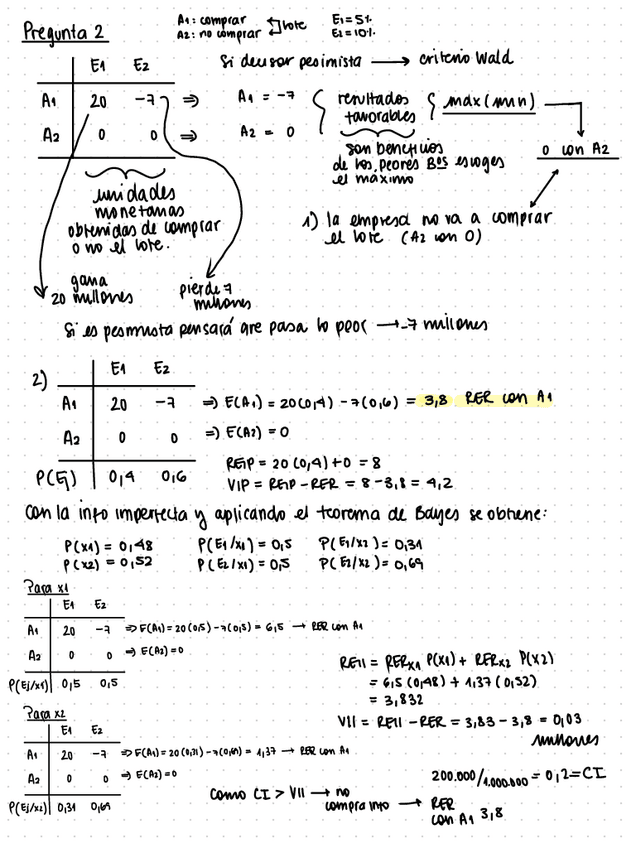 Pregunta 2
A1: comprar
A2: no comprar
lote
E1 = 5%
E2 = 10%
Si decisor pesimista → criterio Wald
E1 E2
A1 20 -7 ⇒ A1 = -7
A2 0 0 ⇒ A2 = 0
resultados favorables
max(min)
son beneficios
de los peores Bºs escoges
el máximo
0 con A2
unidades
monetarias
obtenidas de comprar
o no el lote.
1) la empresa no va a comprar
el lote (A2 con 0)
gana
20 millones
pierde 7
millones
Si es pesimista pensará que pasa lo peor → -7 millones
2)
E1 E2
A1 20 -7 ⇒ E(A1) = 20(0,4) - 7(0,6) = 3,8 RER con A1
A2 0 0 ⇒ E(A2) = 0
P(Ej) 0,4 0,6
REIP = 20(0,4)+0 = 8
VIP = REIP - RER = 8 - 3,8 = 4,2
Con la info imperfecta y aplicando el teorema de Bayes se obtiene:
P(x1) = 0,48 P(E1/x1) = 0,5 P(E1/x2) = 0,31
P(x2) = 0,52 P(E2/x1) = 0,5 P(E2/x2) = 0,69
Para x1
E1 E2
A1 20 -7 ⇒ E(A1) = 20(0,5) - 7(0,5) = 6,5 → RER con A1
A2 0 0 ⇒ E(A2) = 0
P(Ej/x1) 0,5 0,5
REII = RERx1 P(x1) + RERx2 P(x2)
= 6,5(0,48) + 1,37(0,52)
= 3,832
VII = REII - RER = 3,83 - 3,8 = 0,03
millones
Para x2
E1 E2
A1 20 -7 ⇒ E(A1) = 20(0,31) - 7(0,69) = 1,37 → RER con A1
A2 0 0 ⇒ E(A2) = 0
P(Ej/x2) 0,31 0,69
200.000/1.000.000 = 0,2 = CI
Como CI > VII → no
compra info → RER
con A1 3,8